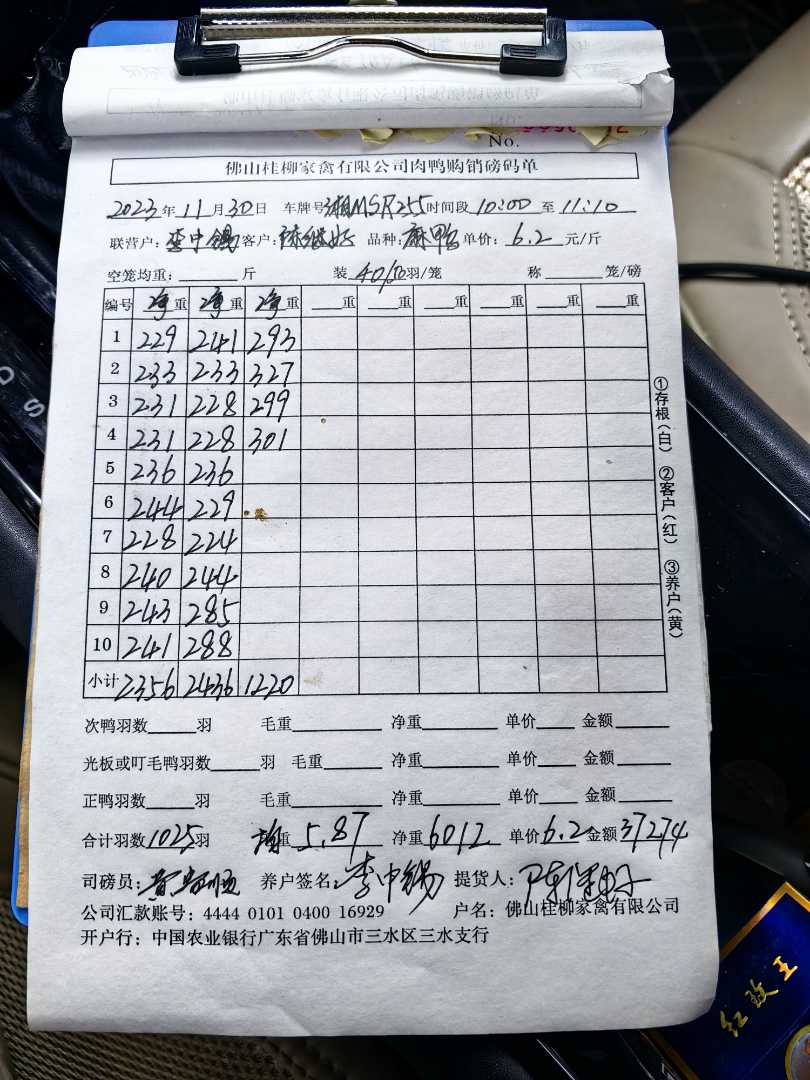 No.
佛山桂柳家禽有限公司肉鸭购销磅码单
2023年11月30日 车牌号湘MSR255时间段10:00至11:10
联营户:李中锡客户: 品种:麻鸭单价:6.2元/斤
空笼均重:斤 装40/50羽/笼 称笼/磅
编号 净重 净重 净重 重 重 重 重 重 重
1 229 241 293
2 233 233 327
3 231 228 299
4 231 228 301
5 236 236
6 244 229
7 228 224
8 240 244
9 243 285
10 241 288
小计 2356 2436 1220
次鸭羽数羽 毛重 净重 单价 金额
光板或叮毛鸭羽数羽 毛重 净重 单价 金额
正鸭羽数羽 毛重 净重 单价 金额
合计羽数1025羽 均重5.87 净重6012 单价6.2金额37274
司磅员: 养户签名:李中锡 提货人:
公司汇款账号:4444 0101 0400 16929 户名:佛山桂柳家禽有限公司
开户行:中国农业银行广东省佛山市三水区三水支行
①存根(白) ②客户(红) ③养户(黄)
红玫王
D
S